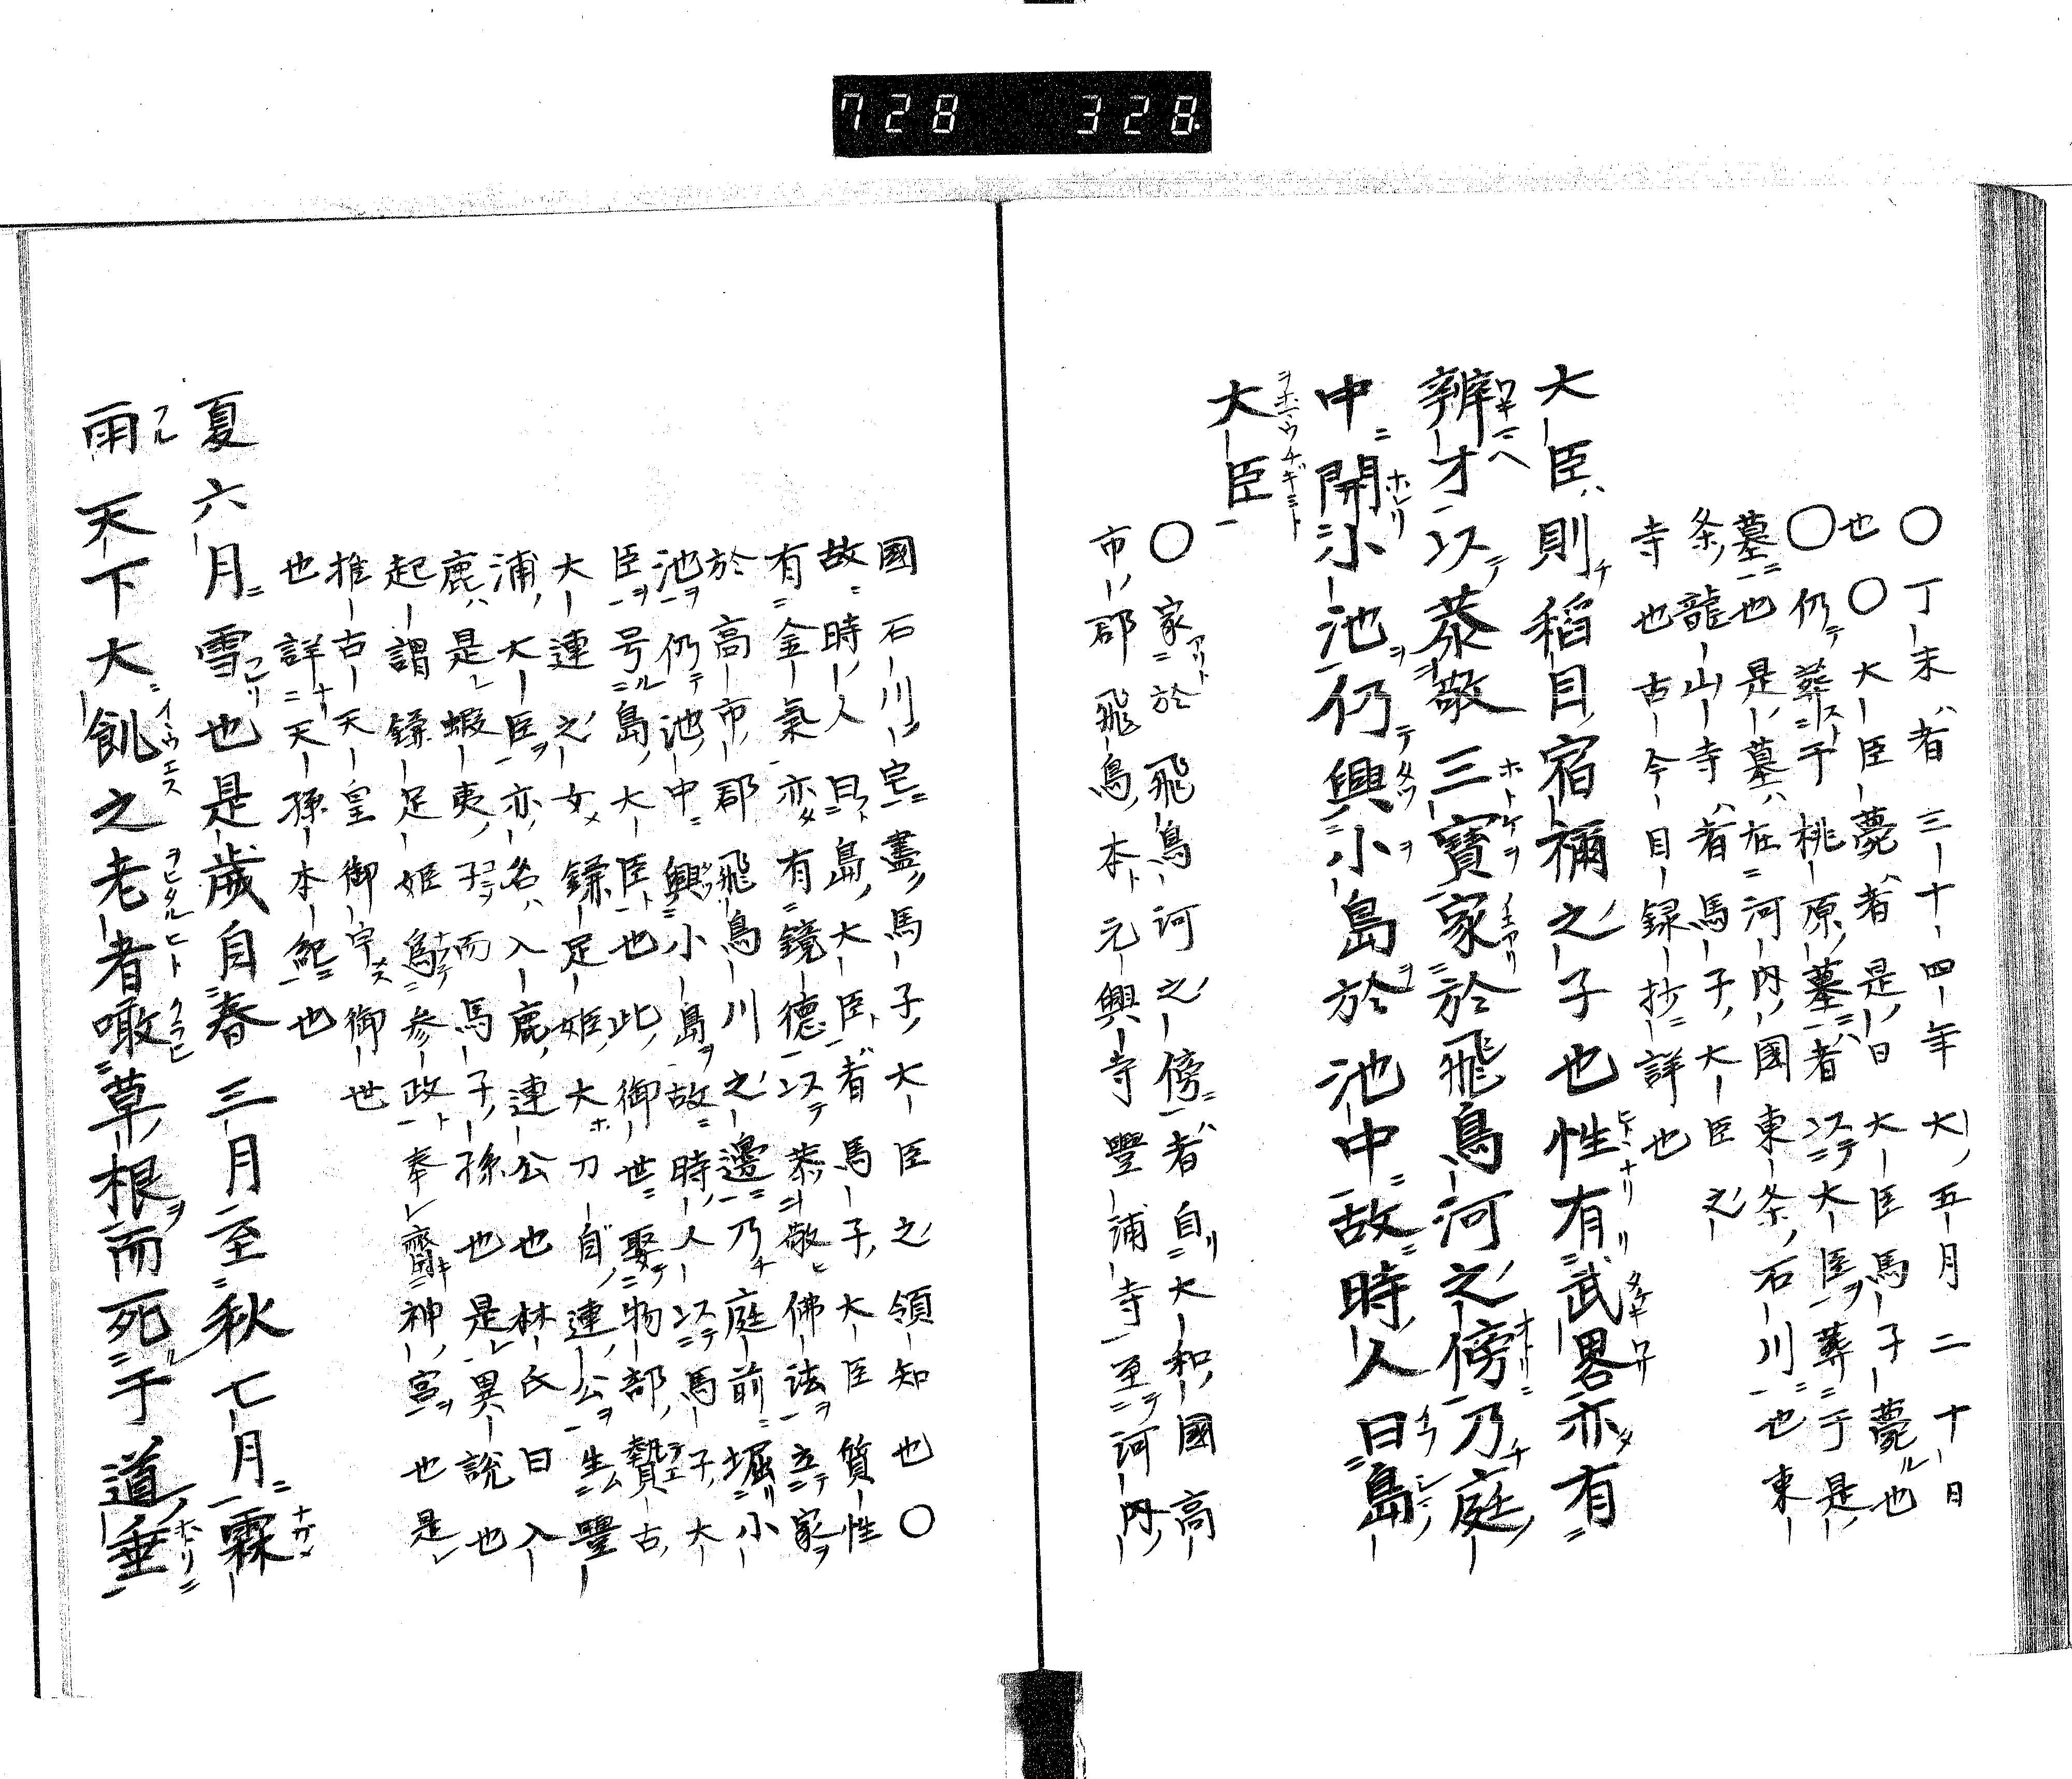 728 328
〇丁未者三十四年大五月二十日
也〇大臣薨者是曰大臣馬子薨也
〇仍葬于桃原墓者以大臣葬于是
墓也是墓在河内國東条石川也東
条龍山寺者馬子大臣之
寺也古今目録抄詳也
大臣則稲目宿禰之子也性有武畧亦有
辨才以恭敬三寶家於飛鳥河之傍乃庭
中開小池仍興小島於池中故時人曰島
大臣
〇家於飛鳥河之傍者自大和國高
市郡飛鳥本元興寺豐浦寺至河内
國石川宅盡馬子大臣之領知也〇
故時人曰島大臣者馬子大臣質性
有金氣亦有鏡德以恭敬佛法立家
於高市郡飛鳥川之邊乃庭前堀小
池仍池中興小島故時人以馬子大
臣号島大臣也此御世娶物部贄古
大連之女鎌足姫大刀自連公生豐
浦大臣亦名入鹿連公也林氏曰入
鹿是蝦夷子而馬子孫也是異説也
起謂鎌足姫為参政奉齋神宮也是
推古天皇御宇御世
也詳天孫本紀也
夏六月雪也是歳自春三月至秋七月霖
雨天下大飢之老者噉草根而死于道垂